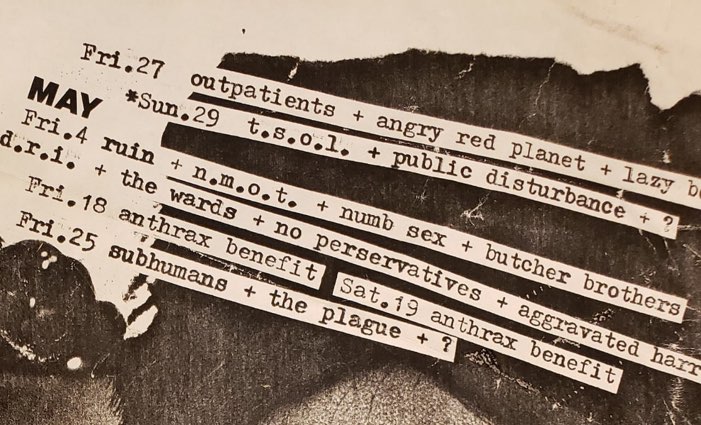 Fri.27 outpatients + angry red planet + lazy
*Sun.29 t.s.o.l. + public disturbance + ?
MAY
Fri.4 ruin + n.m.o.t. + numb sex + butcher brothers
d.r.i. + the wards + no perservatives + aggravated
Fri.18 anthrax benefit Sat.19 anthrax benefit
Fri.25 subhumans + the plague + ?